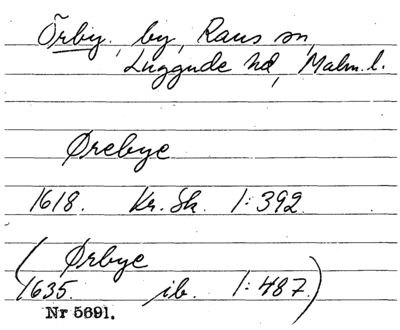 Örby, by, Raus sn,
Luggude hd, Malm. l.
Ørebye
1618. Kr. Sk. 1:392
( Ørbye
1635. ib. 1:487.)
Nr 5691.